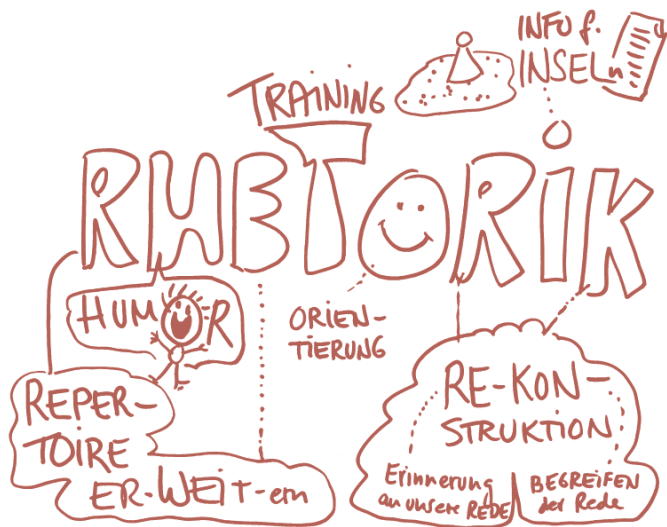 INFO f.
INSELn
TRAINING
RHETORIK
HUMOR
ORIEN-
TIERUNG
REPER-
TOIRE
ER-WEIT-ern
RE-KON-
STRUKTION
Erinnerung
an unsere REDE
BEGREIFEN
der Rede